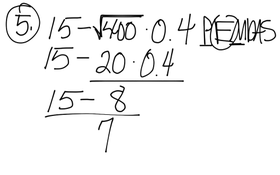 5. 15 - √400 · 0.4 PEMDAS
15 - 20 · 0.4
15 - 8
7